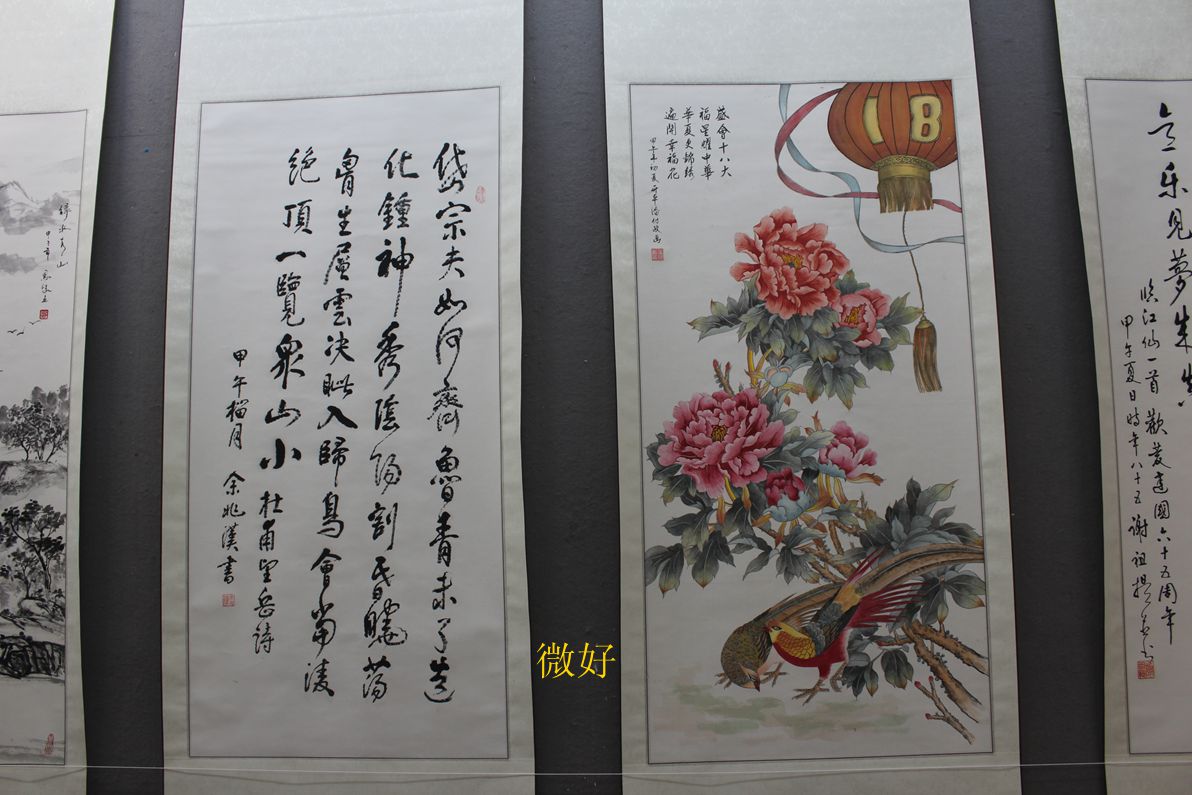 绿水青山
岱宗夫如何齊魯青未了造
化鍾神秀陰陽割昏曉蕩
胷生層雲決眦入歸鳥會當淩
絶頂一覽衆山小 杜甫望岳詩
甲午榴月 余兆漢書
微好
18
盛會十八大
福星耀中華
華夏更錦綉
遍開幸福花
甲午年初夏
乐见夢
临江仙一首歡慶建國六十五周年
甲午夏日時年八十五謝祖